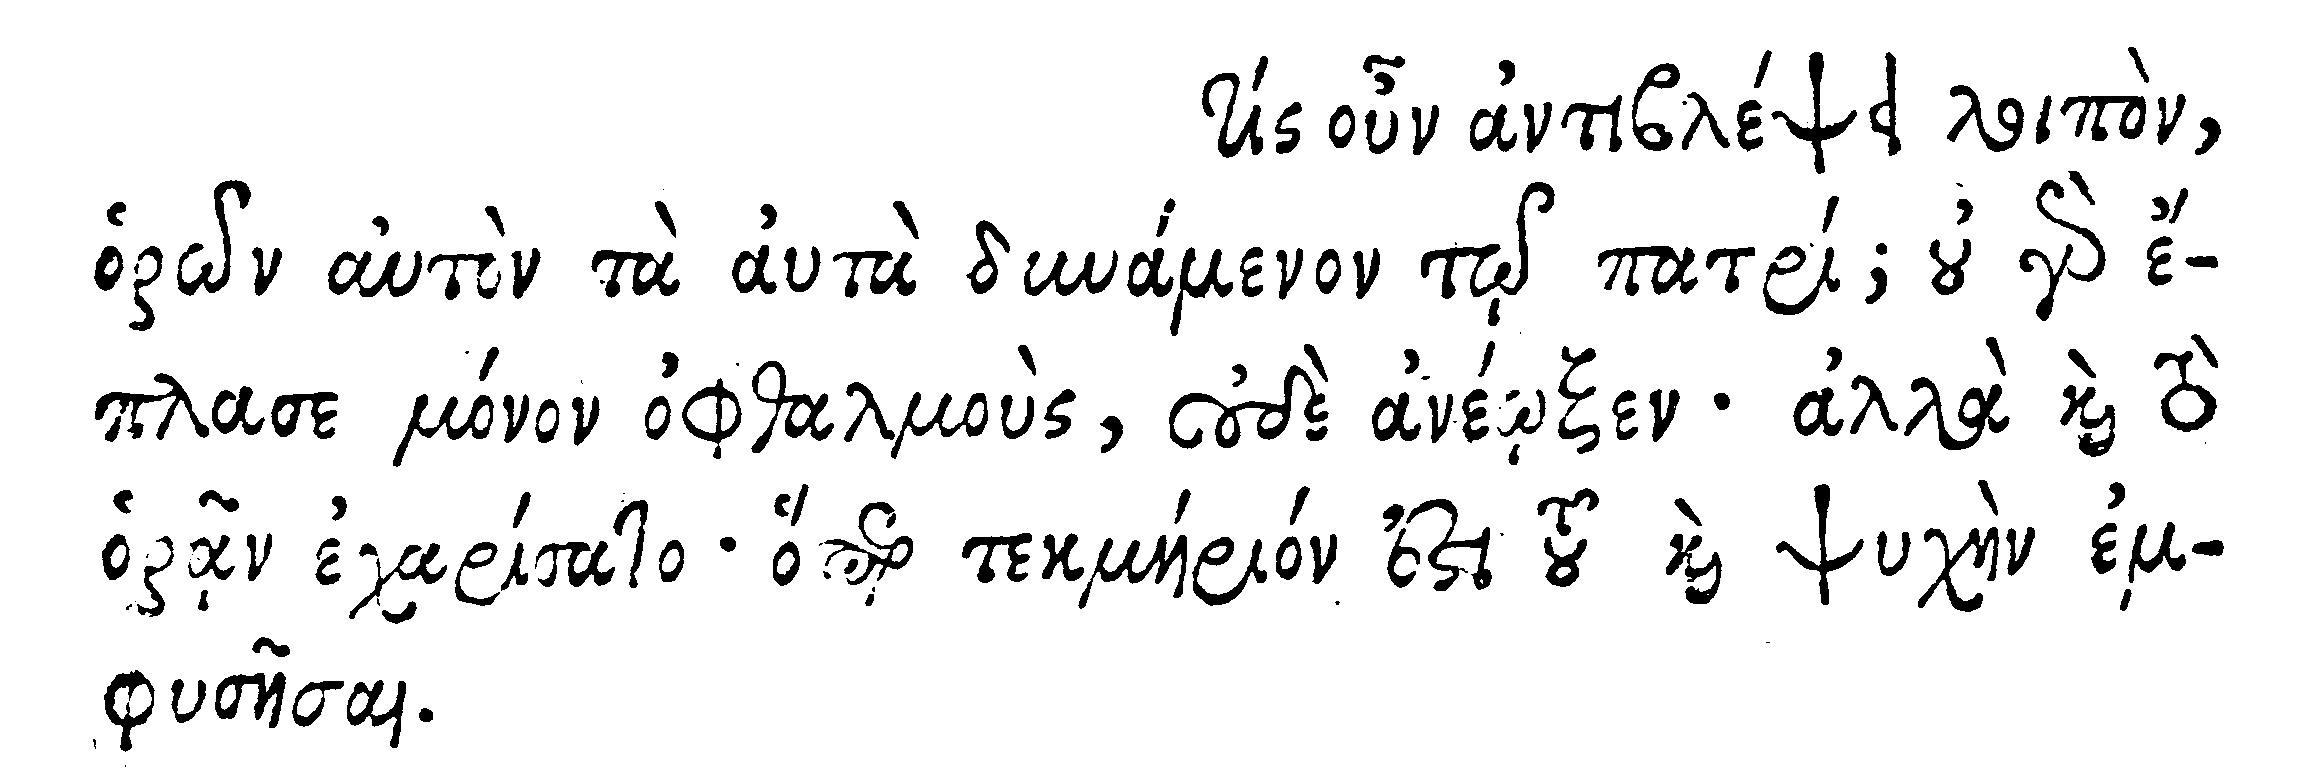 Τίς οὖν ἀντιβλέψει λοιπὸν,
ὁρῶν αὐτὸν τὰ ἀυτὰ δυνάμενον τῷ πατρί; οὐ γὰρ ἔ-
πλασε μόνον ὀφθαλμοὺς, οὐδὲ ἀνέῳξεν· ἀλλὰ καὶ τὸ
ὁρᾷν ἐχαρίσατο· ὅπερ τεκμήριόν ἐστι τοῦ καὶ ψυχὴν ἐμ-
φυσῆσαι.